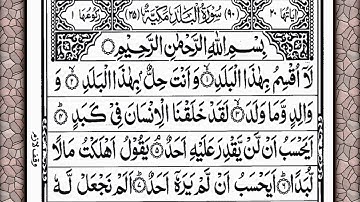 اٰيَاتُهَا ٢٠ (٩٠) سُوْرَةُ الْبَلَدِ مَكِّيَّةٌ (٣٥) رُكُوْعُهَا ١
بِسْمِ اللّٰهِ الرَّحْمٰنِ الرَّحِيْمِ
لَاۤ اُقْسِمُ بِهٰذَا الْبَلَدِ ۙ۝١ وَ اَنْتَ حِلٌّۢ بِهٰذَا الْبَلَدِ ۙ۝٢ وَ
وَالِدٍ وَّ مَا وَلَدَ ۙ۝٣ لَقَدْ خَلَقْنَا الْاِنْسَانَ فِیْ كَبَدٍ ؕ۝٤
اَیَحْسَبُ اَنْ لَّنْ یَّقْدِرَ عَلَیْهِ اَحَدٌ ۘ۝٥ یَقُوْلُ اَهْلَكْتُ مَالًا
لُّبَدًا ؕ۝٦ اَیَحْسَبُ اَنْ لَّمْ یَرَهٗۤ اَحَدٌ ؕ۝٧ اَلَمْ نَجْعَلْ لَّهٗ
وقف لازم